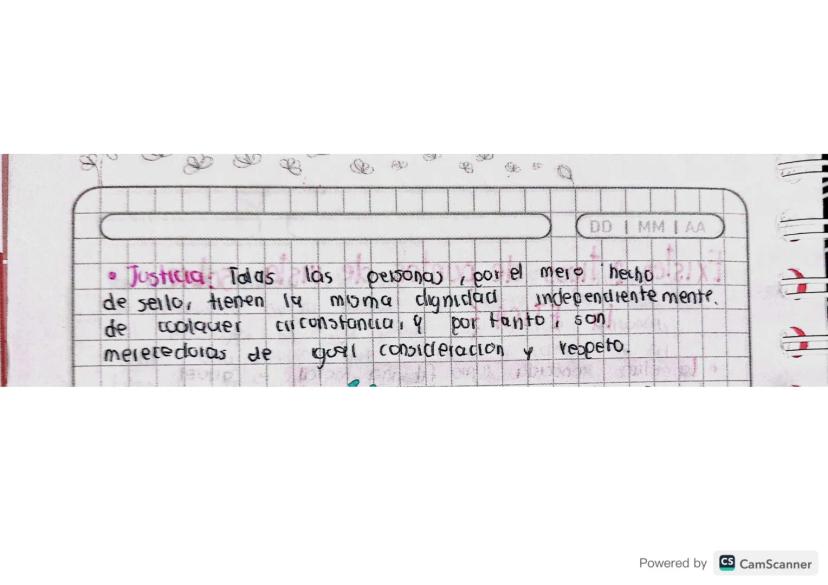 DD | MM | AA
• Justicia: Todas las personas, por el mero hecho
de serlo, tienen la misma dignidad independientemente.
de cualquer circonstancia, y por tanto, son
merecedoras de goal consideracion y respeto.
Powered by CS CamScanner